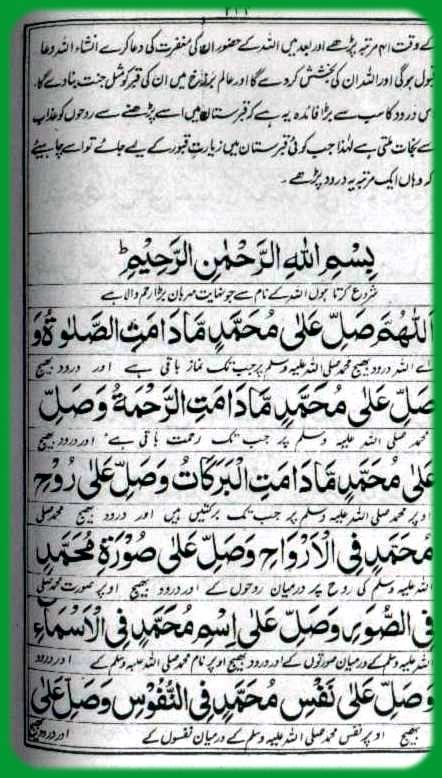 ۲۱۱
کے وقت ۴۱ مرتبہ پڑھے اور بعد میں اللہ کے حضور ان کی مغفرت کی دعا کرے انشاء اللہ دعا
قبول ہوگی اور اللہ ان کی بخشش کر دے گا اور عالم برزخ میں ان کی قبر کو مثل جنت بنا دے گا۔
اس درود کا سب سے بڑا فائدہ یہ ہے کہ قبرستان میں اسے پڑھنے سے روحوں کو عذاب
سے نجات ملتی ہے لہٰذا جب کوئی قبرستان میں زیارت قبور کے لیے جائے تو اسے چاہیئے
کہ وہاں ایک مرتبہ یہ درود پڑھے۔
بِسْمِ اللّٰهِ الرَّحْمٰنِ الرَّحِيْمِ ط
شروع کرتا ہوں اللہ کے نام سے جو نہایت مہربان بڑا رحم والا ہے
اَللّٰهُمَّ صَلِّ عَلٰى مُحَمَّدٍ مَّا دَامَتِ الصَّلٰوةُ وَ
اے اللہ درود بھیج محمد صلی اللہ علیہ وسلم پر جب تک نماز باقی ہے اور درود بھیج
صَلِّ عَلٰى مُحَمَّدٍ مَّا دَامَتِ الرَّحْمَةُ وَصَلِّ
محمد صلی اللہ علیہ وسلم پر جب تک رحمت باقی ہے اور درود بھیج
عَلٰى مُحَمَّدٍ مَّا دَامَتِ الْبَرَكَاتُ وَصَلِّ عَلٰى رُوْحِ
اوپر محمد صلی اللہ علیہ وسلم پر جب تک برکتیں ہیں اور درود بھیج محمد صلی
مُحَمَّدٍ فِى الْاَرْوَاحِ وَصَلِّ عَلٰى صُوْرَةِ مُحَمَّدٍ
اللہ علیہ وسلم کی روح پر درمیان روحوں کے اور درود بھیج اوپر صورت محمد صلی
فِى الصُّوَرِ وَصَلِّ عَلٰى اِسْمِ مُحَمَّدٍ فِى الْاَسْمَآءِ
اللہ علیہ وسلم کے درمیان صورتوں کے اور درود بھیج اوپر نام محمد صلی اللہ علیہ وسلم کے اور درود
وَصَلِّ عَلٰى نَفْسِ مُحَمَّدٍ فِى النُّفُوْسِ وَصَلِّ عَلٰى
بھیج اوپر نفس محمد صلی اللہ علیہ وسلم کے درمیان نفسوں کے اور درود بھیج